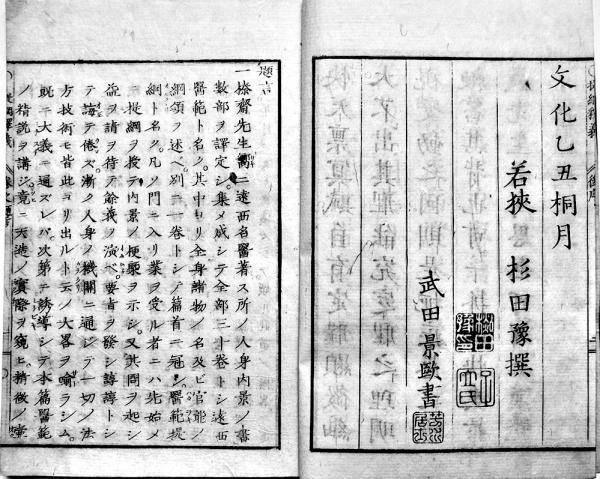 文化乙丑桐月
若狹 杉田豫撰
武田景歐書
題言
一榛齋先生嚮ニ遠西名醫著ス所ノ人身内景ノ書
數部ヲ譯定シ集メ成シテ全部三十卷トシ遠西
醫範ト名ク其中ヨリ全身諸物ノ名及ビ官能ノ
綱領ヲ述ベ別ニ一卷トシテ篇首ニ冠シ醫範提
綱ト名ク凡ソ門ニ入リ業ヲ受ル者ニハ先始メ
ニ提綱ヲ授テ内景ノ梗槩ヲ示シ又其問ヲ起シ
益ヲ請ヲ待テ餘義ヲ演ベ要旨ヲ發シ諄諄トシ
テ誨テ倦ズ漸ク人身ノ機關ニ通ジテ一切ノ法
方技術モ皆此ヨリ出ルト云ノ大畧ヲ喩ラシム
既ニ大義ニ通ズレバ次第ニ誘導シテ本篇醫範
ノ精説ヲ講ジ竟ニ天造ノ實際ヲ窺ヒ精微ノ
提綱釋義